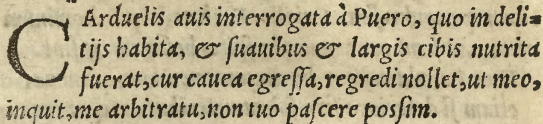 CArduelis auis interrogata à Puero, quo in deli⸗
tijs habita, & ſuauibus & largis cibis nutrita
fuerat, cur cauea egreſſa, regredi nollet, ut meo,
inquit, me arbitratu, non tuo paſcere poſſim.